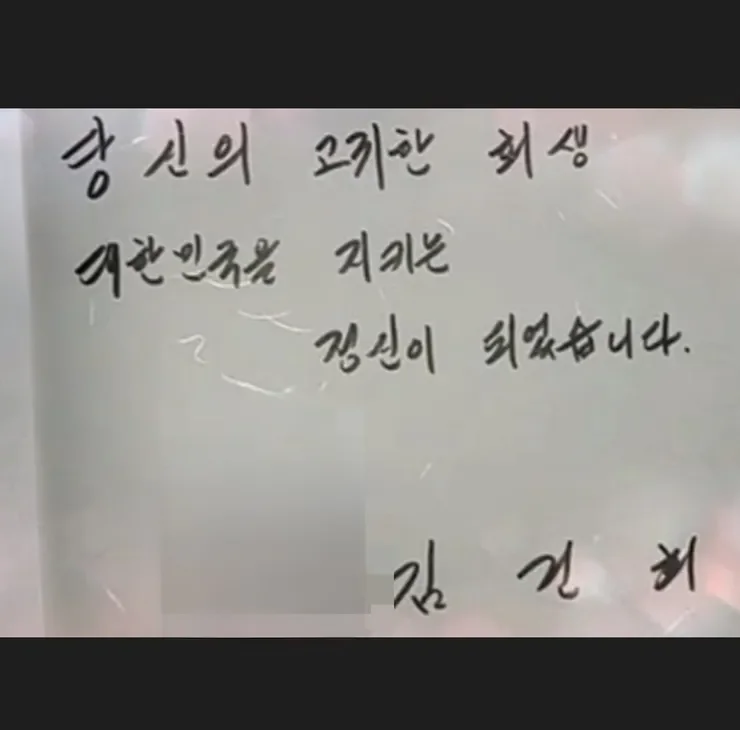 당신의 고귀한 희생
대한민국을 지키는
정신이 되었습니다.
김 건 희